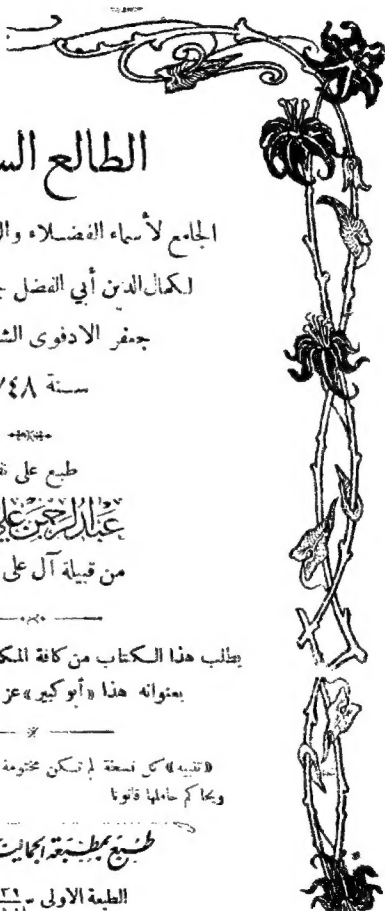 الطالع
الجامع لأسماء الفضلاء
لكمال الدين أبي الفضل
جعفر الادفوى
سنة ٧٤٨
طبع على
عبد الرحمن على
من قبيلة آل على
يطلب هذا الكتاب من كافة
بعنوانه هذا «أبو كبير»
«تنبيه» كل نسخة لم تكن مختومة
ويحاكم حاملها قانونا
طبع بمطبعة
الطبعة الاولى